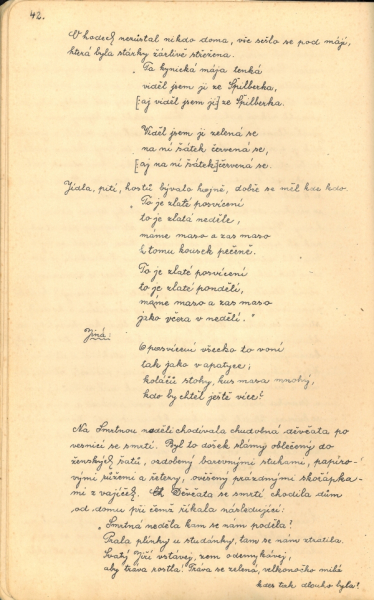 42.
V hodech nezůstal nikdo doma, vše sešlo se pod máji,
která byla stárky žárlivě střežena.
„Ta kynická mája tenká
viděl jsem ji ze Špilberka,
[aj viděl jsem ji] ze Špilberka.
Viděl jsem ji zelená se
na ní šátek červená se,
[aj na ní šátek] červená se.
Jídla, pití, hostů bývalo hojně, dobře se měl kde kdo.
„To je zlaté posvícení
to je zlatá neděle,
máme maso a zas maso
k tomu kousek pečeně.
To je zlaté posvícení
to je zlaté pondělí,
máme maso a zas maso
jako včera v neděli."
Jiná:
O posvícení všecko to voní
tak jako v apatyce;
koláčů stohy, kus masa mnohý,
kdo by chtěl ještě více?
Na Smrtnou neděli chodívala chudobná děvčata po
vesnici se smrtí. Byl to došek slámy oblečený do
ženských šatů, ozdobený barevnými stuhami, papíro-
vými růžemi a řetezy, ověšený prázdnými skořápka-
mi z vajíček. Děvčata se smrtí chodila dům
od domu při čemž říkala následující:
„Smrtná neděla kam se nám poděla?
Prala plínky u studánky, tam se nám ztratila.
Svatý Jiří vstávej, zem odemykávej,
aby tráva rostla! Tráva se zelená, velkonočko milá
kdes tak dlouho byla?